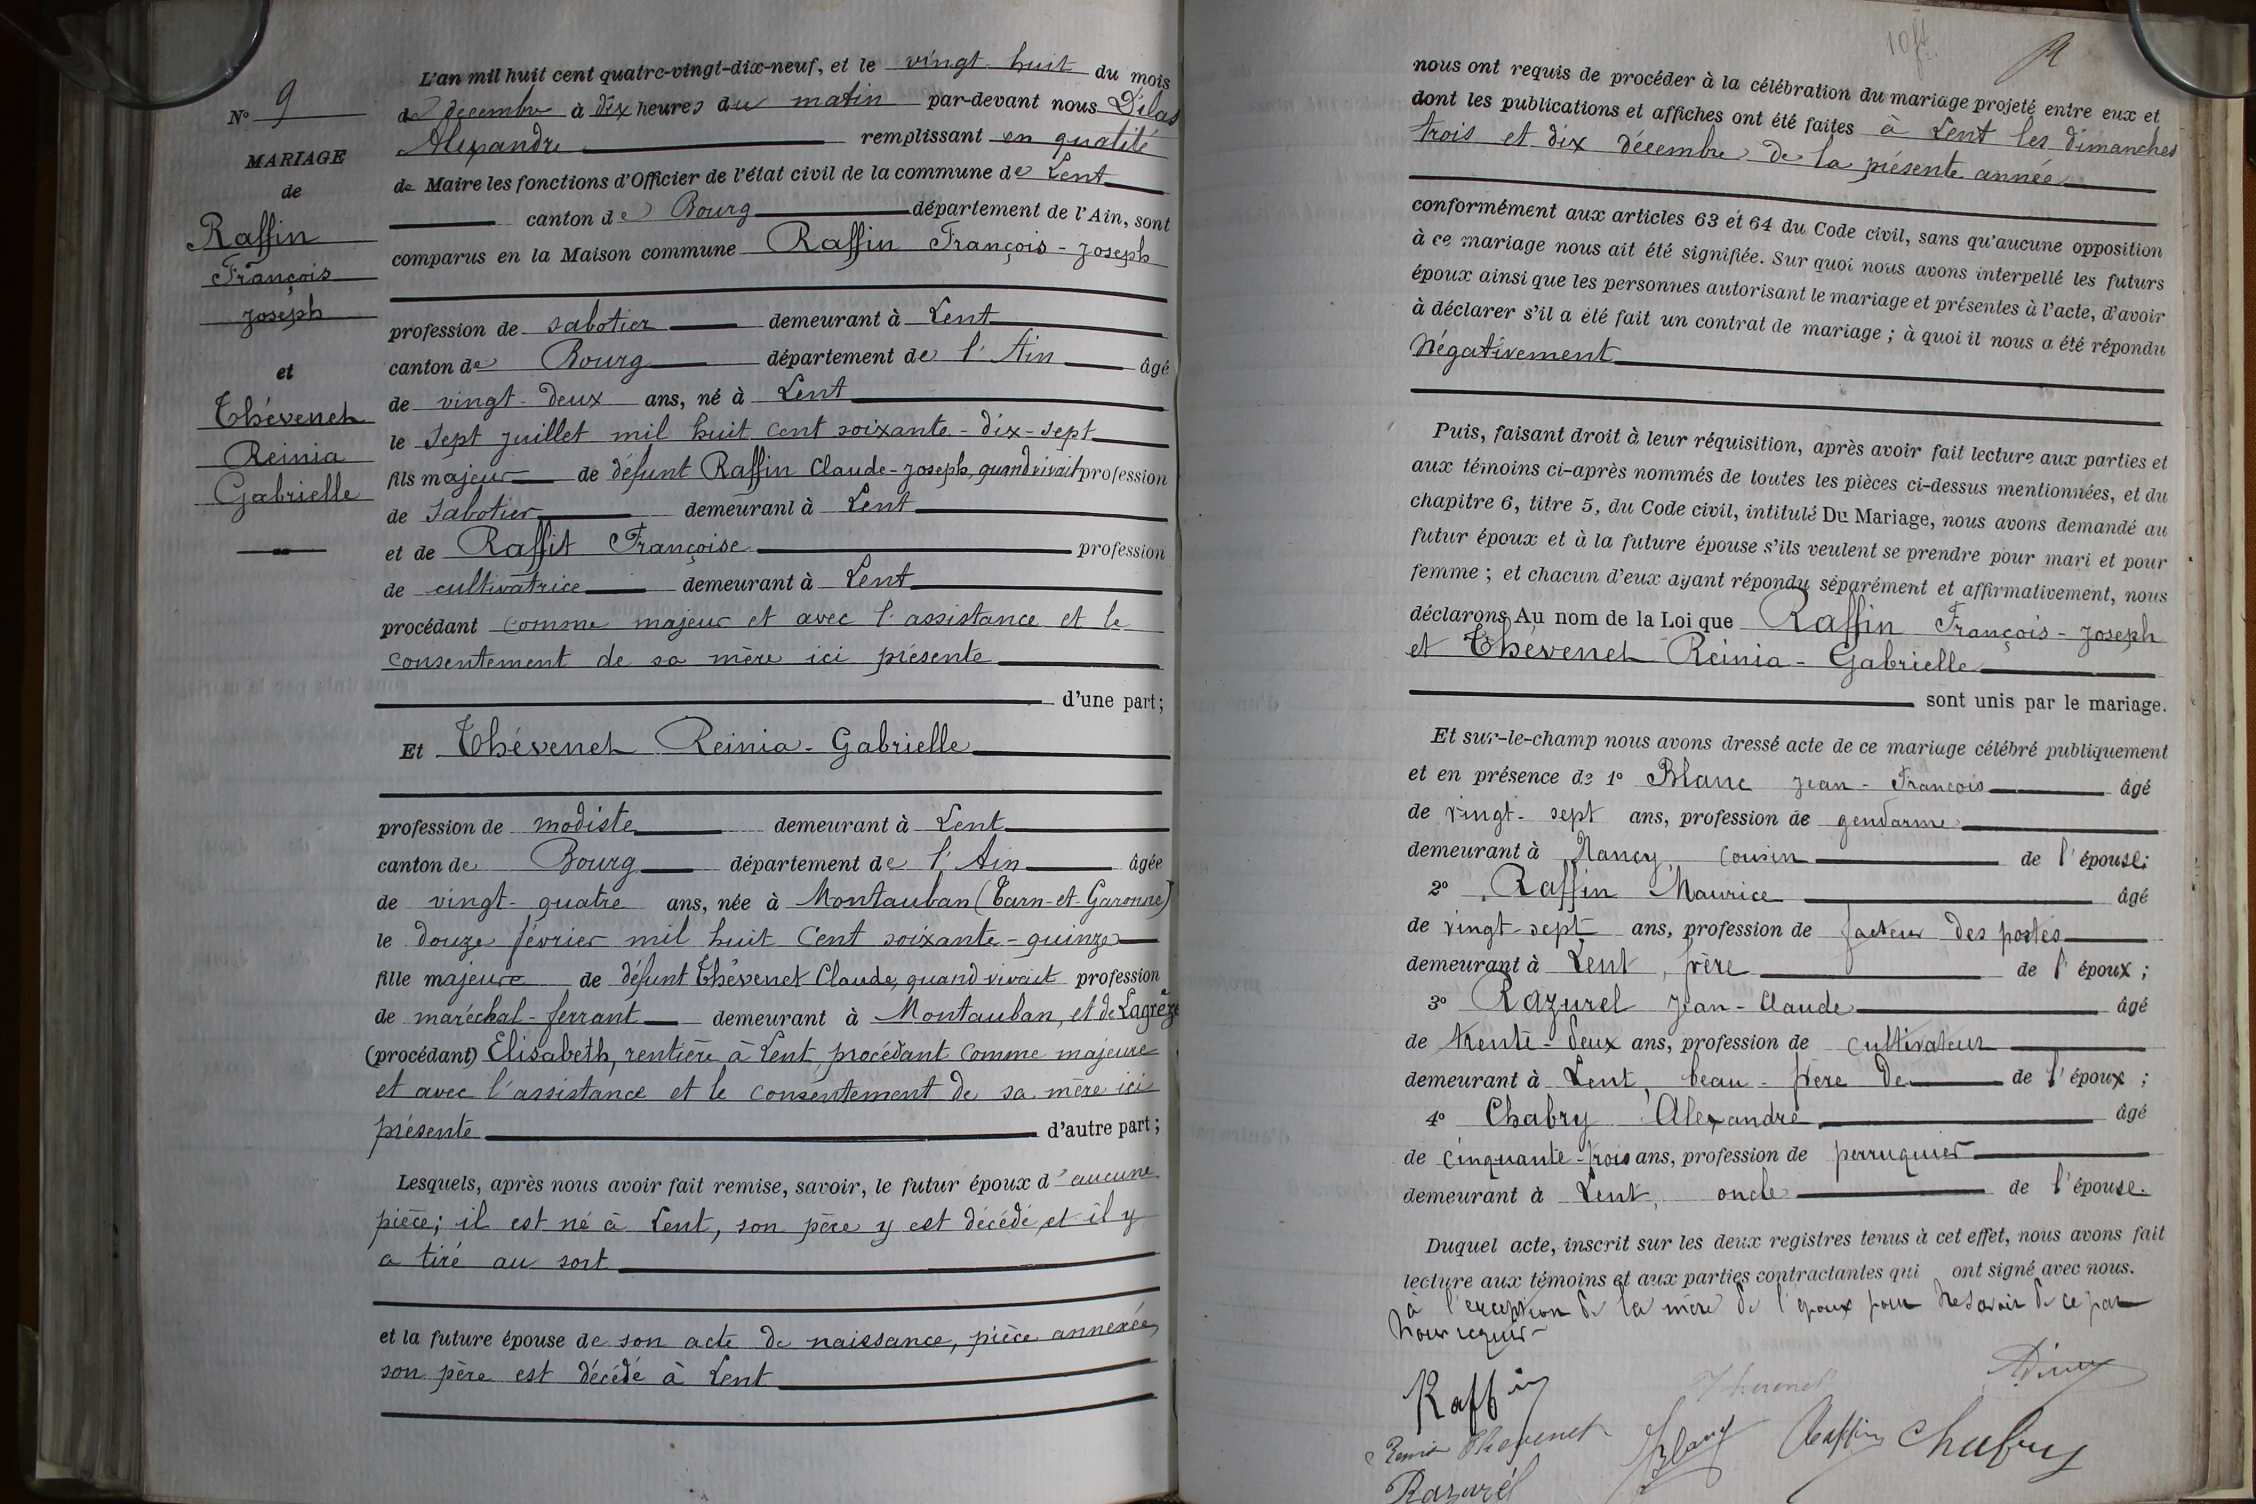 N° 9
MARIAGE
de
Raffin
François
Joseph
et
Thévenet
Reinia
Gabrielle
L'an mil huit cent quatre-vingt-dix-neuf, et le vingt-huit du mois
de décembre à dix heures du matin par-devant nous
Alexandre remplissant en qualité
de Maire les fonctions d'Officier de l'état civil de la commune de Lent
canton de Bourg département de l'Ain, sont
comparus en la Maison commune Raffin François-Joseph
profession de sabotier demeurant à Lent
canton de Bourg département de l'Ain âgé
de vingt-deux ans, né à Lent
le sept juillet mil huit cent soixante-dix-sept
fils majeur de défunt Raffin Claude-Joseph, quand vivait profession
de sabotier demeurant à Lent
et de Raffit Françoise profession
de cultivatrice demeurant à Lent
procédant comme majeur et avec l'assistance et le
consentement de sa mère ici présente
d'une part;
Et Thévenet Reinia-Gabrielle
profession de modiste demeurant à Lent
canton de Bourg département de l'Ain âgée
de vingt-quatre ans, née à Montauban (Tarn-et-Garonne)
le douze février mil huit cent soixante-quinze
fille majeure de défunt Thévenet Claude, quand vivait profession
de maréchal-ferrant demeurant à Montauban, et de Lagrèze
(procédant) Elisabeth, rentière à Lent, procédant comme majeure
et avec l'assistance et le consentement de sa mère ici
présente d'autre part;
Lesquels, après nous avoir fait remise, savoir, le futur époux d'aucune
pièce; il est né à Lent, son père y est décédé et il y
a tiré au sort
et la future épouse de son acte de naissance, pièce annexée,
son père est décédé à Lent
nous ont requis de procéder à la célébration du mariage projeté entre eux et
dont les publications et affiches ont été faites à Lent les dimanches
trois et dix décembre de la présente année
conformément aux articles 63 et 64 du Code civil, sans qu'aucune opposition
à ce mariage nous ait été signifiée. Sur quoi nous avons interpellé les futurs
époux ainsi que les personnes autorisant le mariage et présentes à l'acte, d'avoir
à déclarer s'il a été fait un contrat de mariage; à quoi il nous a été répondu
Négativement
Puis, faisant droit à leur réquisition, après avoir fait lecture aux parties et
aux témoins ci-après nommés de toutes les pièces ci-dessus mentionnées, et du
chapitre 6, titre 5, du Code civil, intitulé Du Mariage, nous avons demandé au
futur époux et à la future épouse s'ils veulent se prendre pour mari et pour
femme; et chacun d'eux ayant répondu séparément et affirmativement, nous
déclarons Au nom de la Loi que Raffin François-Joseph
et Thévenet Reinia-Gabrielle
sont unis par le mariage.
Et sur-le-champ nous avons dressé acte de ce mariage célébré publiquement
et en présence de 1° Blanc Jean-François âgé
de vingt-sept ans, profession de gendarme
demeurant à Nancy, cousin de l'épouse;
2° Raffin Maurice âgé
de vingt-sept ans, profession de facteur des postes
demeurant à Lent, frère de l'époux;
3° Razurel Jean-Claude âgé
de trente-deux ans, profession de cultivateur
demeurant à Lent, beau-frère de de l'époux;
4° Chabry Alexandre âgé
de cinquante-trois ans, profession de perruquier
demeurant à Lent, oncle de l'épouse.
Duquel acte, inscrit sur les deux registres tenus à cet effet, nous avons fait
lecture aux témoins et aux parties contractantes qui ont signé avec nous.
à l'exception de la mère de l'époux pour ne savoir de ce par
nous requise
Raffin
Thevenet
Reinia Thevenet
Blanc
Raffin
Chabry
Razurel